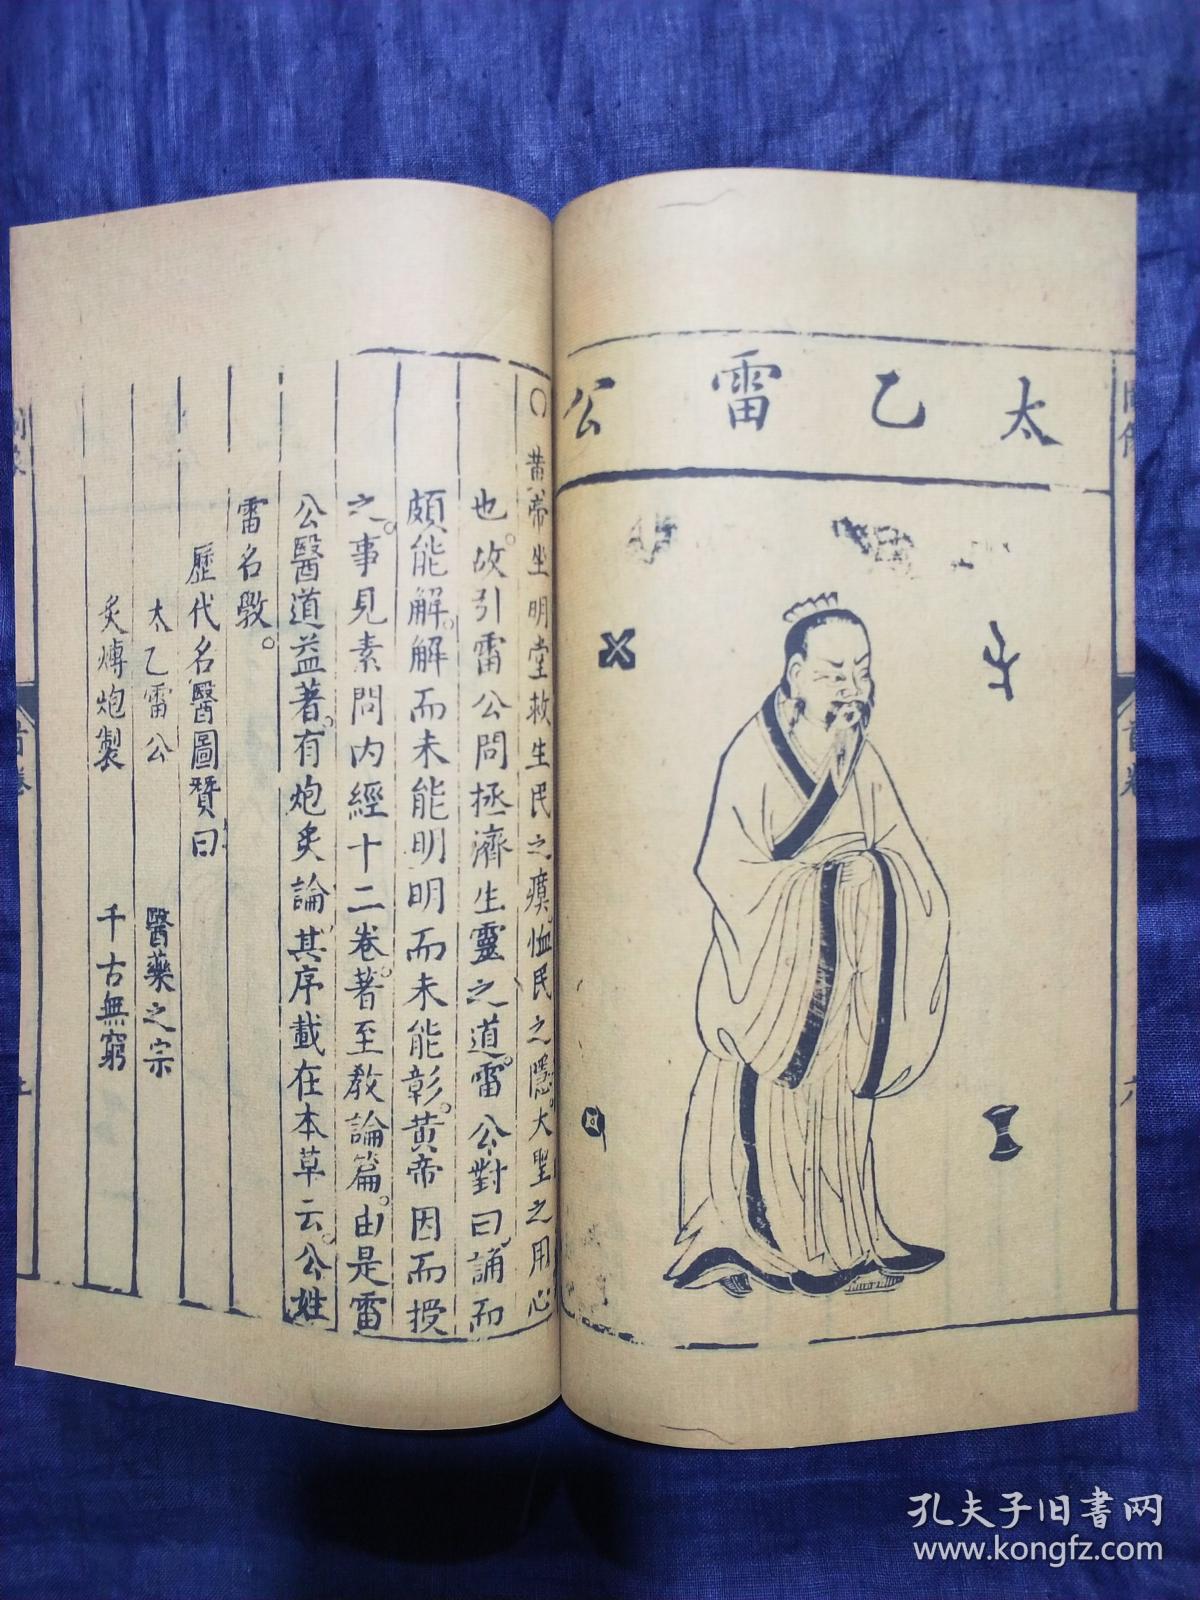 太乙雷公
○黄帝坐明堂救生民之瘼恤民之隱大聖之用心
也。故引雷公問拯濟生靈之道。雷公對曰誦而
頗能解。解而未能明明而未能彰。黄帝因而授
之。事見素問内經十二卷。著至教論篇。由是雷
公醫道益著。有炮炙論其序載在本草云。公姓
雷名斅。
歷代名醫圖贊曰
太乙雷公 醫藥之宗
炙煿炮製 千古無窮
首卷
六
孔夫子旧书网
www.kongfz.com